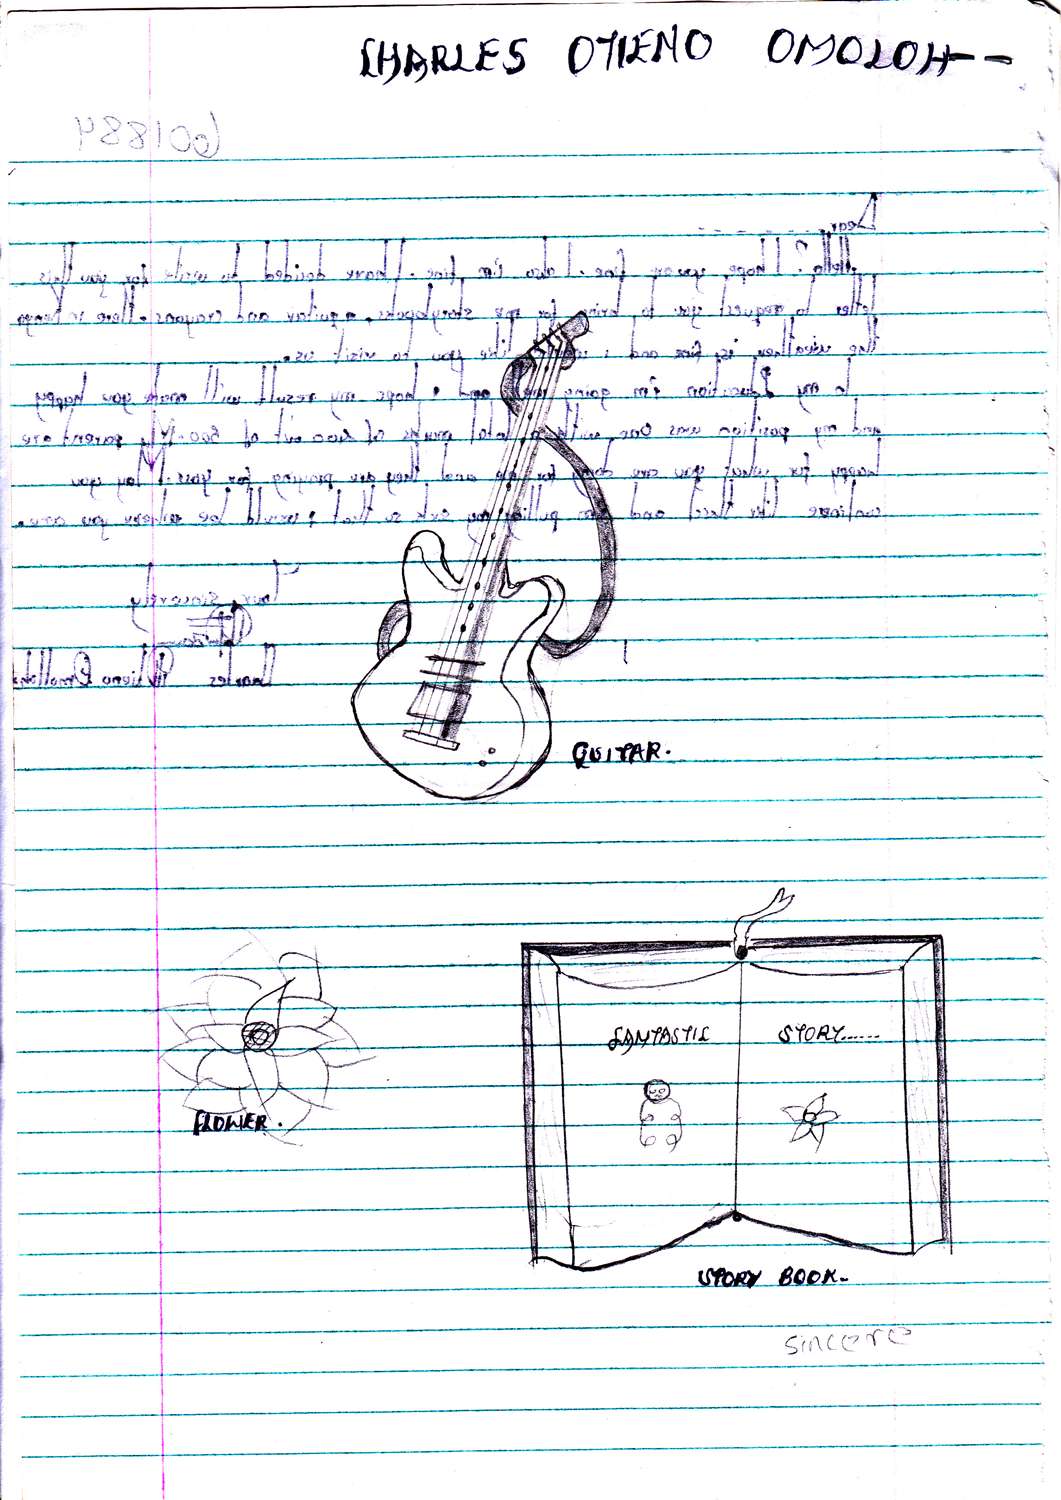 CHARLES OTIENO OMOLOH--
601884
Dear
Hello? I hope you are fine. I also I'm fine. I have decided to write for you this
letter to request you to bring for me storybooks, a guitar and crayons. Here in kenya
the weather is fine and i would like you to visit us.
In my Education I'm going and i hope my result will make you happy
and my position was One with total marks of out of 500. My parent are
happy for what you are doing for me and they are praying for you. I pray you
continue like that and pulling my so that i would be where you are.
Your sincerely
Charles Otieno Omolloh
GUITAR.
FANTASTIC STORY......
FLOWER.
STORY BOOK-
sincere